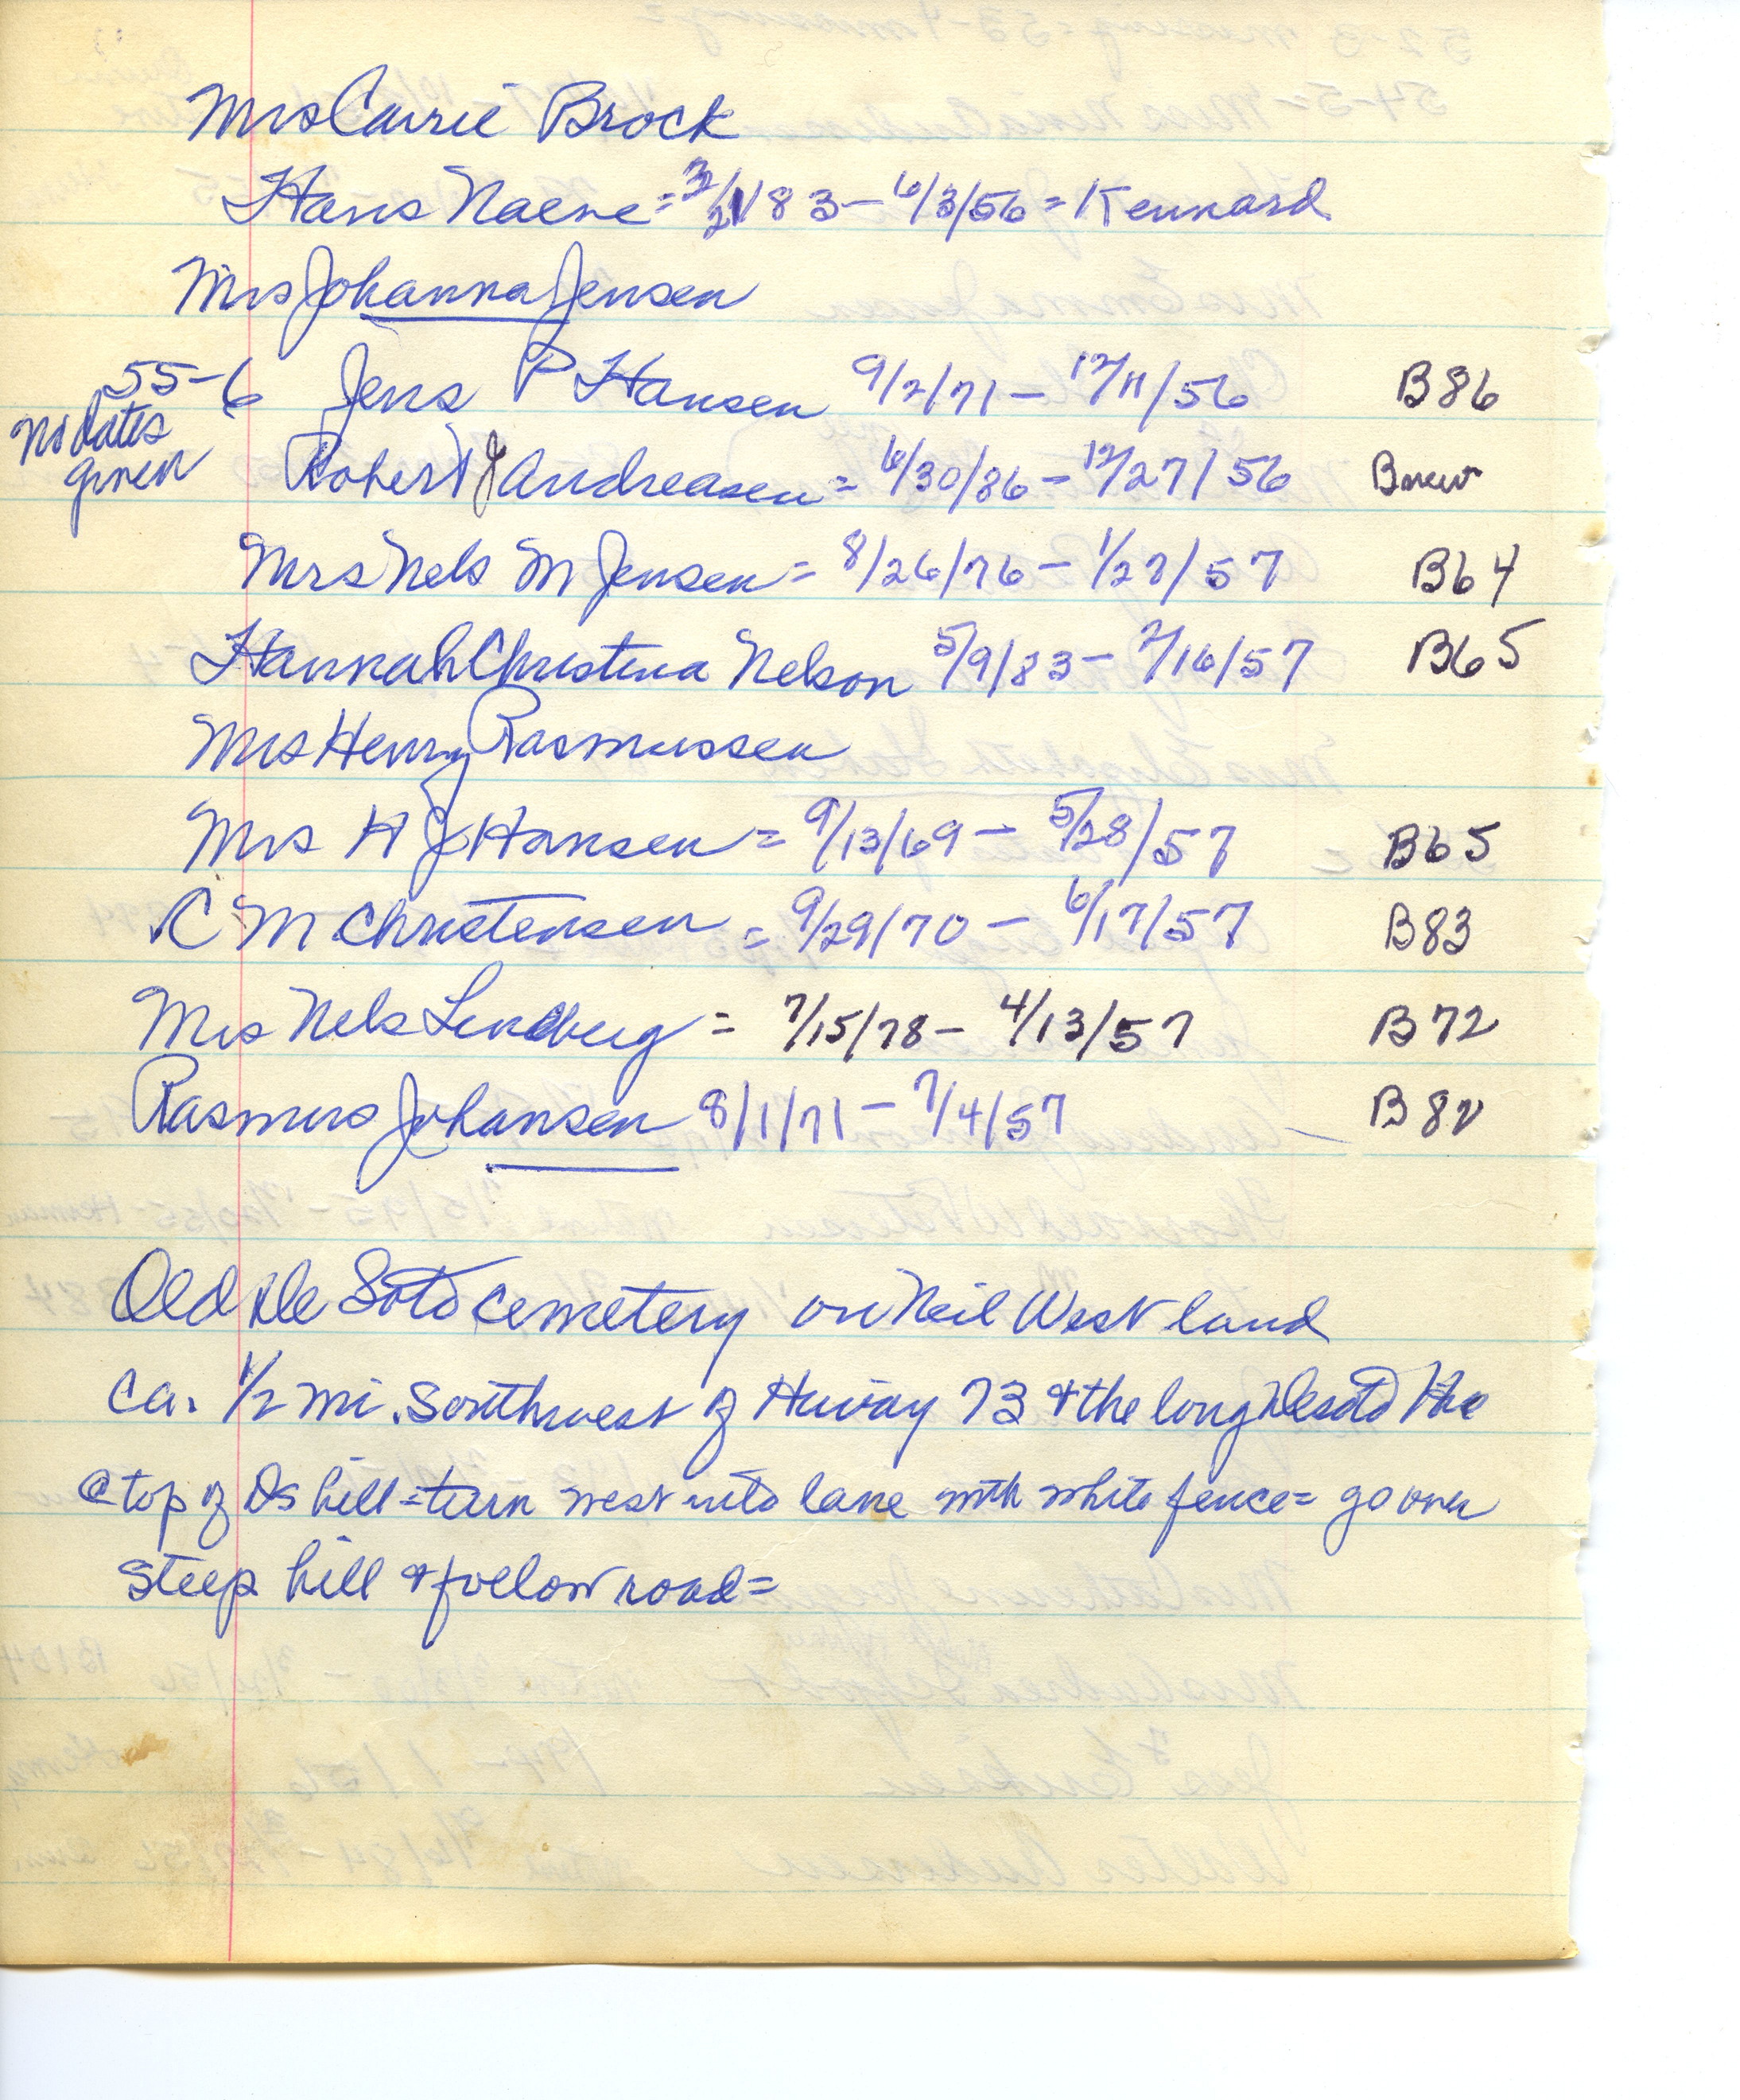 Mrs Carrie Brock
Hans Naeve = 3/21/83 - 6/3/56 = Kennard
Mrs Johanna Jensen
55-6 Jens P Hansen 9/2/71 - 12/11/56 B86
No dates given
Robert J Andreasen = 6/30/86 - 12/27/56 Bnew
Mrs Nels M Jensen = 8/26/76 - 1/27/57 B64
Hannah Christina Nelson 5/9/83 - 2/16/57 B65
Mrs Henry Rasmussen
Mrs H J Hansen = 9/13/69 - 5/28/57 B65
C M Christensen = 9/29/70 - 6/17/57 B83
Mrs Nels Lindberg = 7/15/78 - 4/13/57 B72
Rasmus Johansen 8/1/71 - 7/4/57 B82
Old De Soto cemetery on Neil West land
ca. 1/2 mi. Southwest of Hiway 73 & the long Desoto
@ top of Ds hill = turn west into lane with white fence = go over
steep hill & follow road =